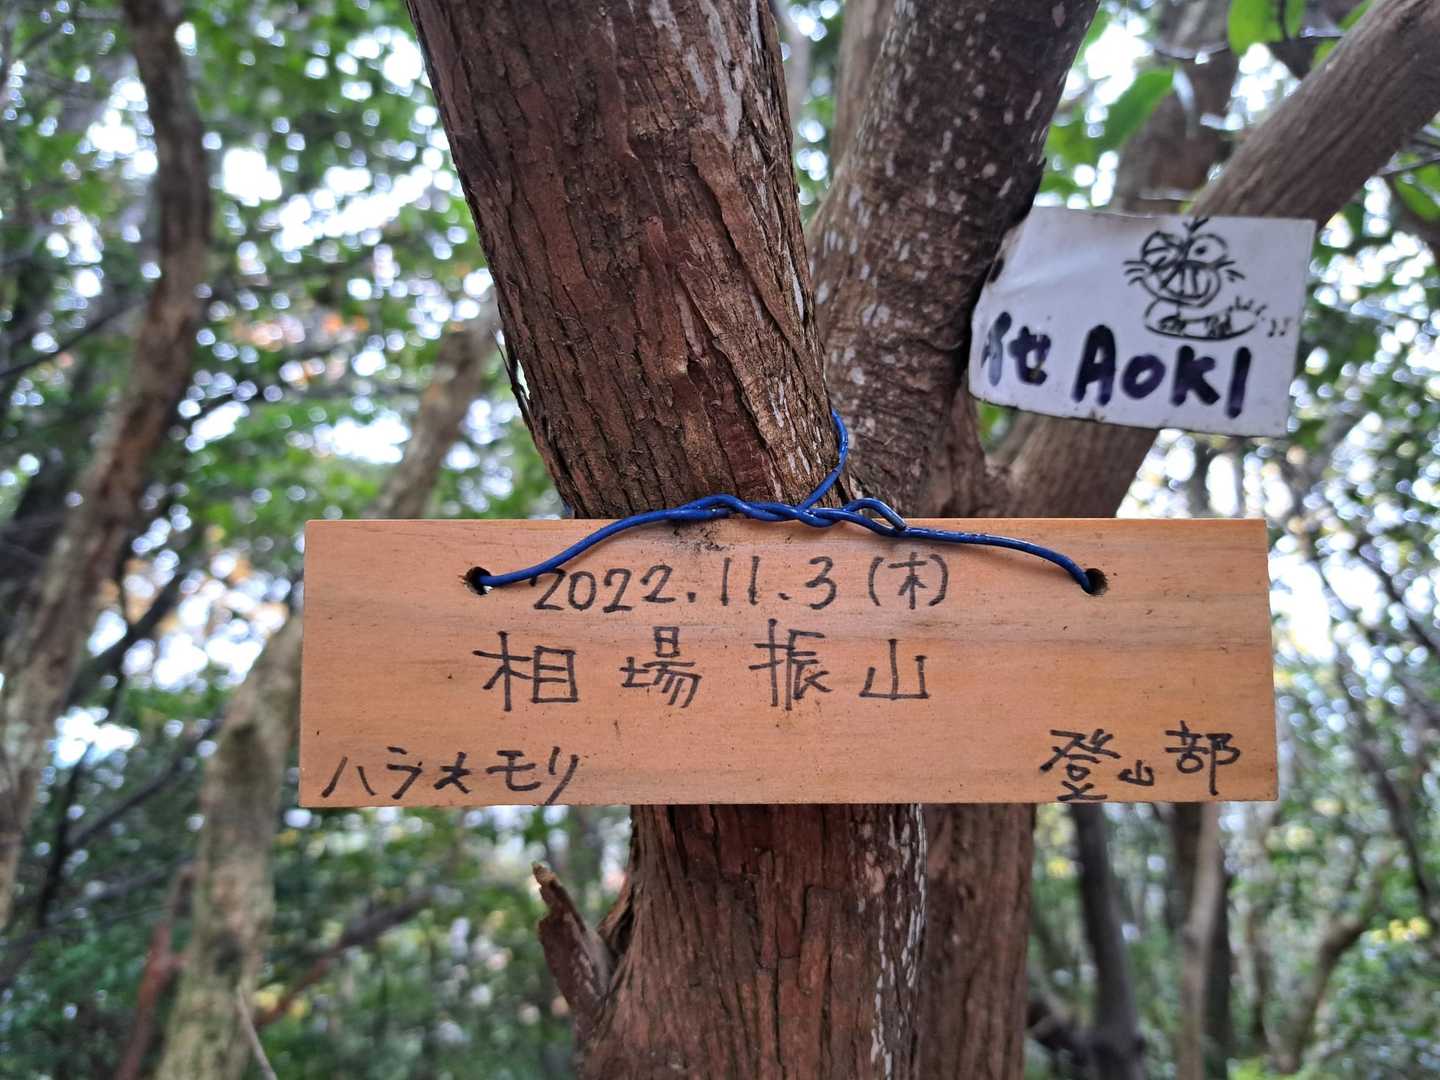 2022.11.3(木)
相場振山
ハラメモリ 登山部
AOKI